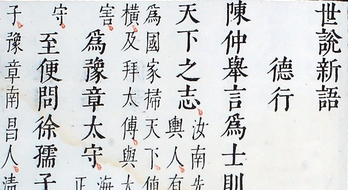 世說新語
德行
陳仲舉言爲士則
天下之志汝南先
輿人有
爲國家掃天下值
橫及拜太傅與大
害
爲豫章太守海
正
守
至便問徐孺子
子豫章南昌人清